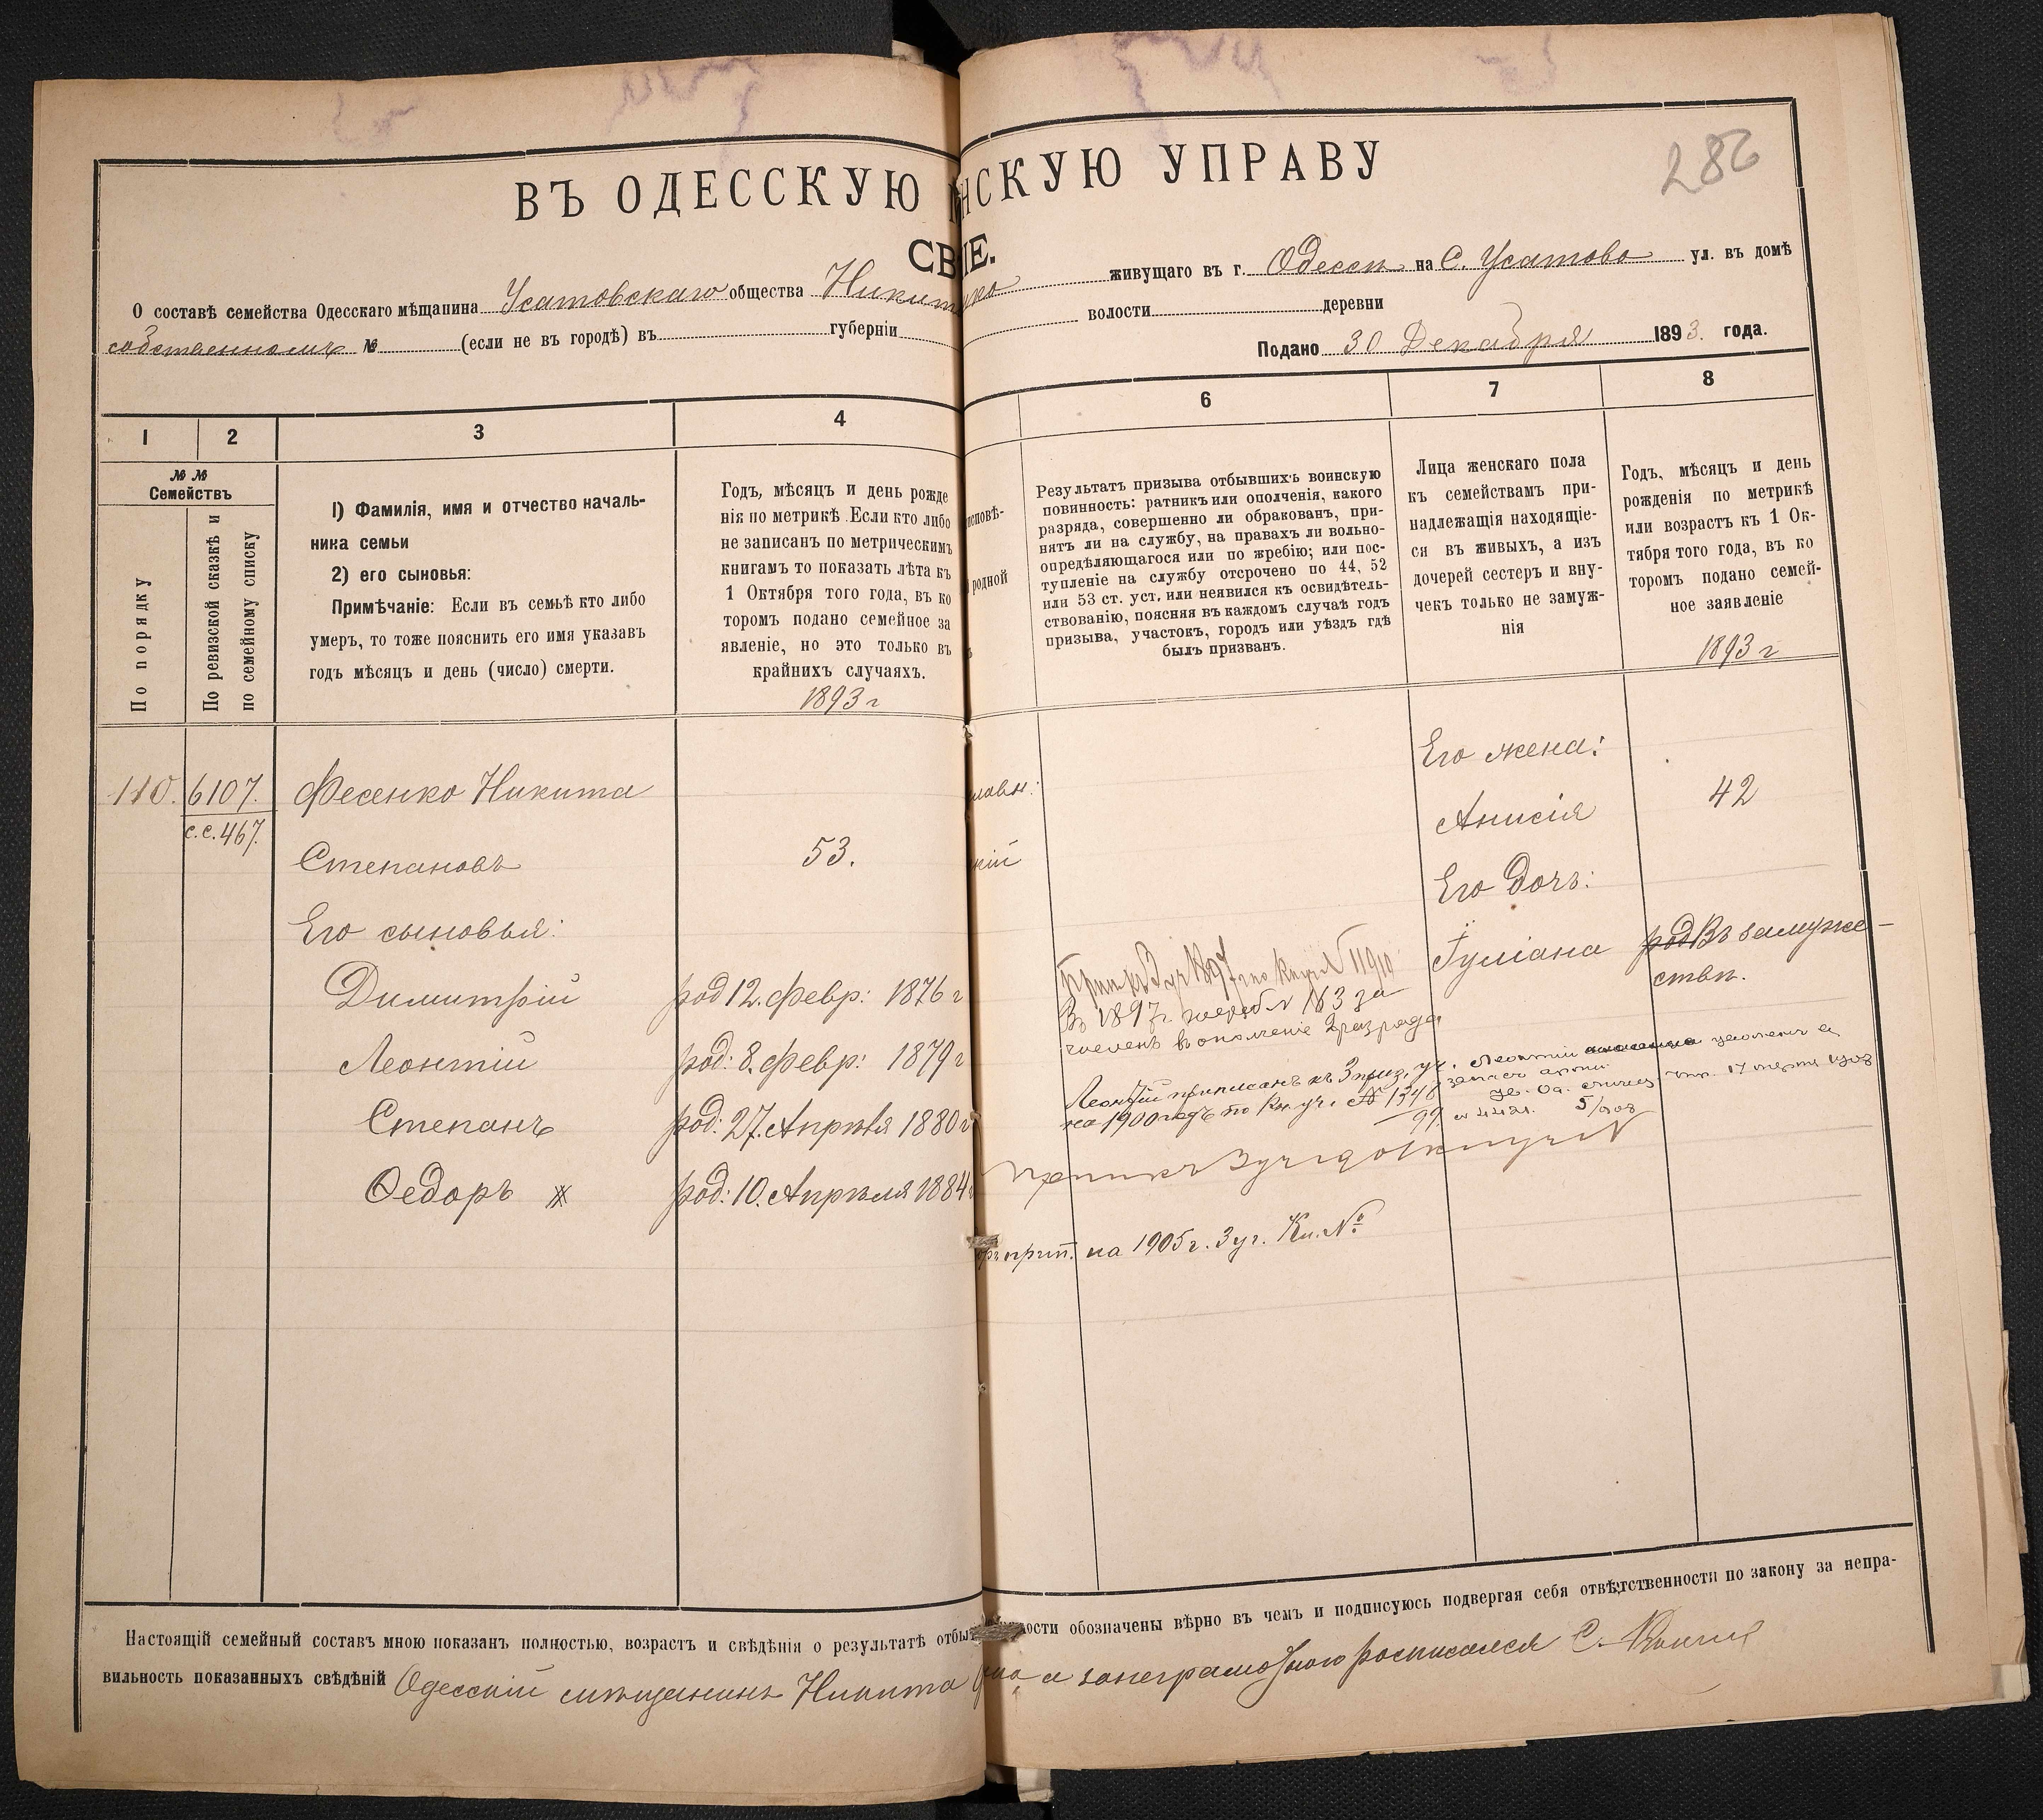 286
ВЪ ОДЕССКУЮ НСКУЮ УПРАВУ
СВ IE.
О составѣ семейства Одесскаго мѣщанина Усатовскаго общества Никит живущаго въ г. Одессѣ на С. Усатово ул. въ домѣ
собственномъ № (если не въ городѣ) въ губерніи волости деревни
Подано 30 Декабря 1893. года.
1 2 3 4 6 7 8
№ № Семействъ
По порядку
По ревизской сказкѣ и
по семейному списку
1) Фамилія, имя и отчество началь-
ника семьи
2) его сыновья:
Примѣчаніе: Если въ семьѣ кто либо
умеръ, то тоже пояснить его имя указавъ
годъ мѣсяцъ и день (число) смерти.
Годъ, мѣсяцъ и день рожде
нія по метрикѣ. Если кто либо
не записанъ по метрическимъ
книгамъ то показать лѣта къ
1 Октября того года, въ ко
торомъ подано семейное за
явленіе, но это только въ
крайнихъ случаяхъ.
1893 г
исповѣ-
родной
Результатъ призыва отбывшихъ воинскую
повинность: ратникъ или ополченія, какого
разряда, совершенно ли обракованъ, при-
нятъ ли на службу, на правахъ ли вольно-
опредѣляющагося или по жребію; или пос-
тупленіе на службу отсрочено по 44, 52
или 53 ст. уст. или неявился къ освидѣтель-
ствованію, поясняя въ каждомъ случаѣ годъ
призыва, участокъ, городъ или уѣздъ гдѣ
былъ призванъ.
Лица женскаго пола
къ семействамъ при-
надлежащія находящіе-
ся въ живыхъ, а изъ
дочерей сестеръ и вну-
чекъ только не замуж-
нія
Годъ, мѣсяцъ и день
рожденія по метрикѣ
или возрастъ къ 1 Ок-
тября того года, въ ко
торомъ подано семей-
ное заявленіе
1893 г
Его жена:
110. 6107. Фесенко Никита лавн:
с.с. 467. Анисія 42
Степановъ 53. кій
Его дочь:
Его сыновья:
Іуліана род Въ замуже-
ствѣ.
Димитрій род 12. февр: 1876 г
В 1897г. жереб № 163 за
численъ в ополченіе 2 разряда
Леонтій род: 8. февр: 1879 г
Леонтій приписанъ къ 3 приз. уч.
на 1900 годъ по Кн. уч. № 1348
Степанъ род: 27. Апрѣля 1880 г
Ѳедоръ род: 10. Апрѣля 1884
прип. на 1905 г. 3 уч. Кн. №
Настоящій семейный составъ мною показанъ полностью, возрастъ и свѣдѣнія о результатѣ отбы ости обозначены вѣрно въ чемъ и подписуюсь подвергая себя отвѣтственности по закону за непра-
вильность показанныхъ свѣдѣній Одесскій мѣщанинъ Никита а занеграмотного росписался С.